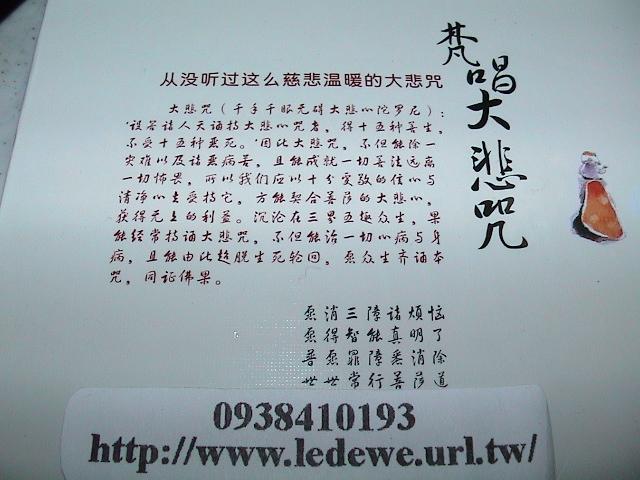 梵唱大悲咒
从没听过这么慈悲温暖的大悲咒
大悲咒（千手千眼无碍大悲心陀罗尼）：
'设若诸人天诵持大悲心咒者，得十五种善生，
不受十五种恶死。'因此大悲咒，不但能除一
灾难以及诸恶病苦，且能成就一切善法远离
一切怖畏，可以我们应以十分虔敬的信心与
清净心去受持它，方能契合菩萨的大悲心，
获得无上的利益。沉沦在三界五趣众生，果
能经常持诵大悲咒，不但能治一切心病与身
病，且能由此超脱生死轮回，愿众生齐诵本
咒，同证佛果。
愿消三障诸烦恼
愿得智能真明了
普愿罪障悉消除
世世常行菩萨道
0938410193
http://www.ledewe.url.tw/